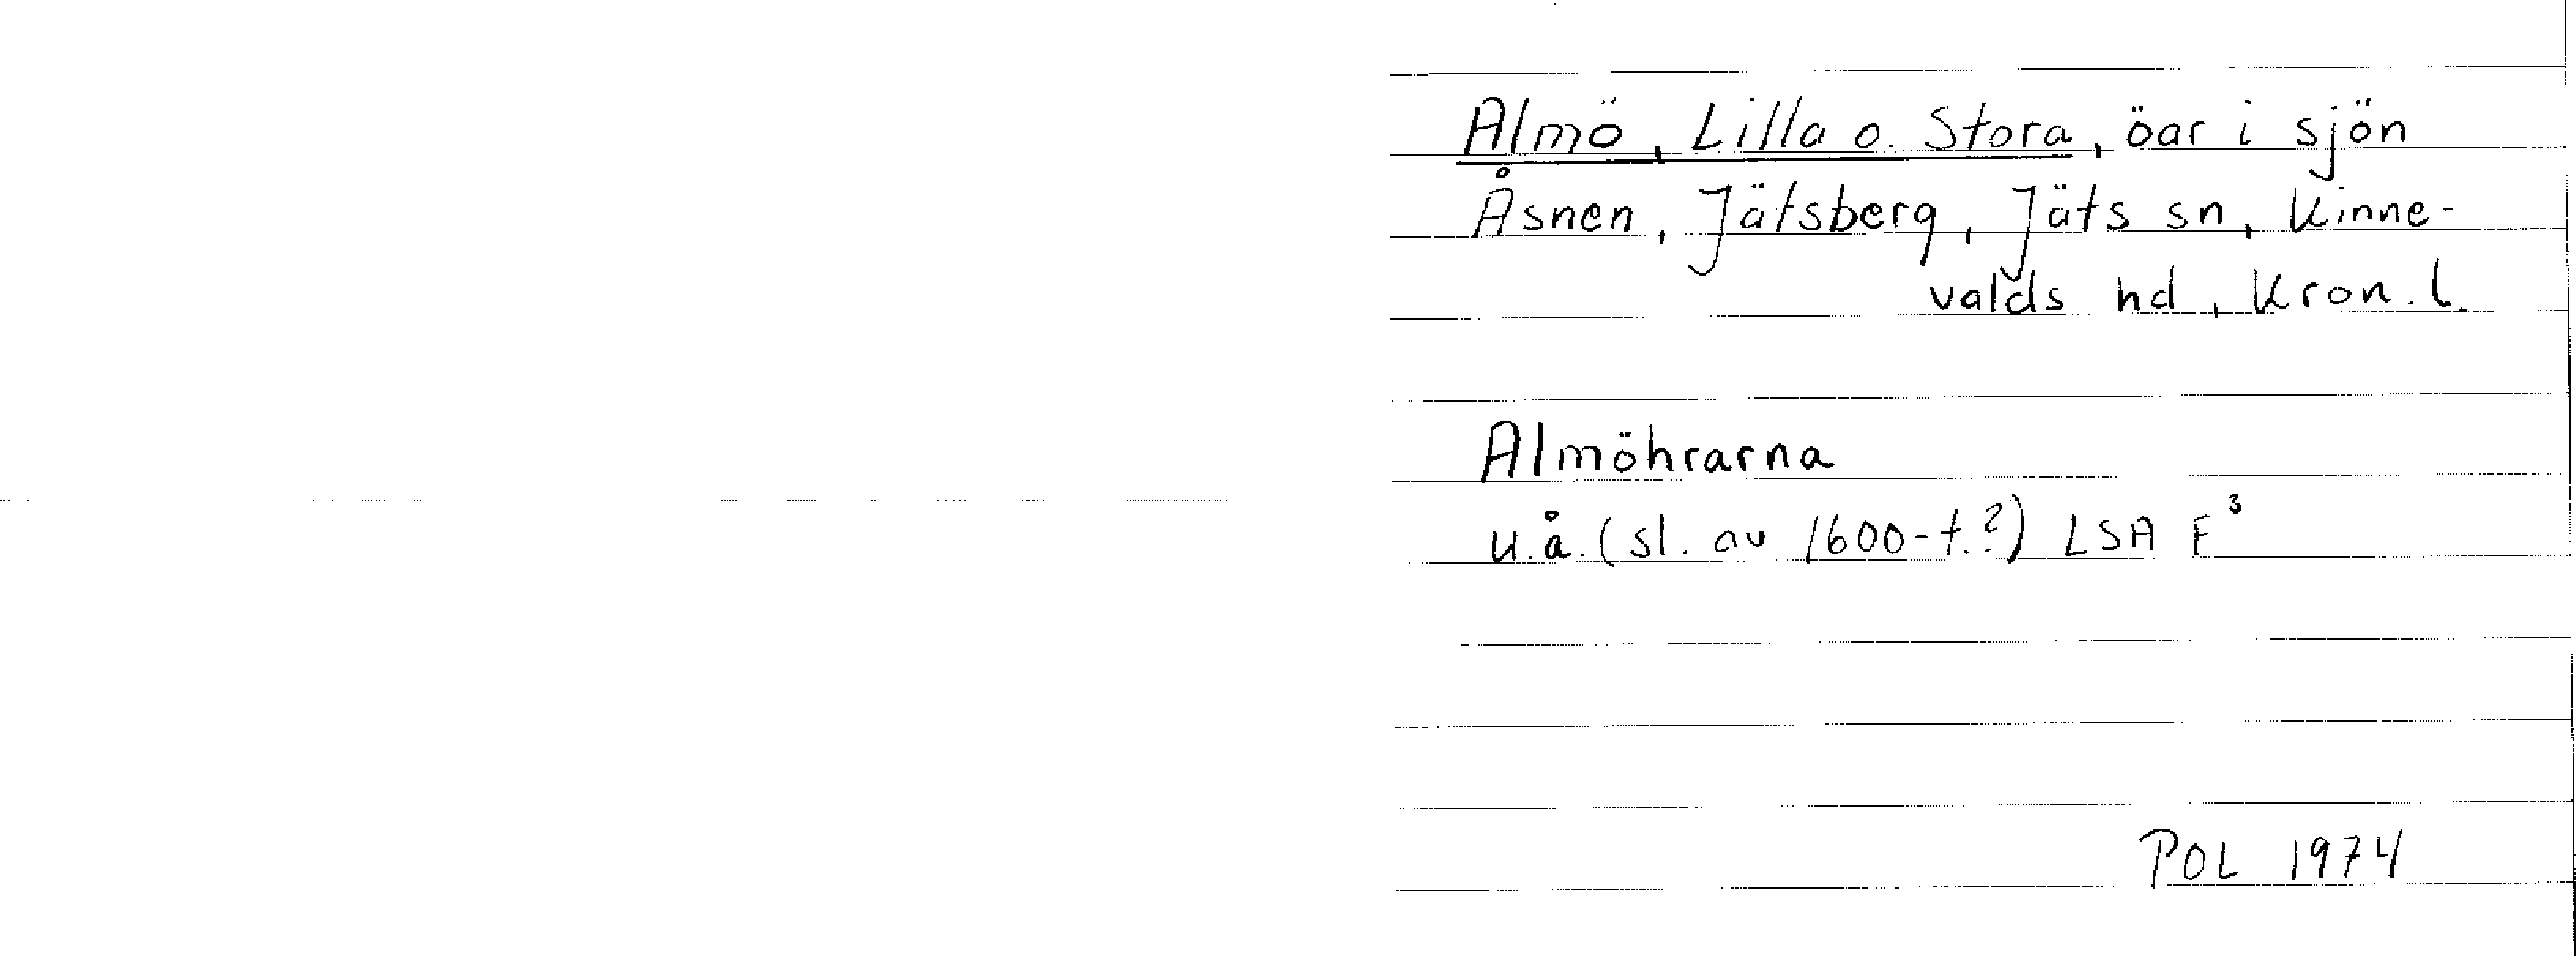 Almö, Lilla o. Stora, öar i sjön
Åsnen, Jätsberg, Jäts sn, Kinne-
valds hd, Kron. l.
Almöhrarna
u.å. (sl. av 1600-t.?) LSA F³
POL 1974